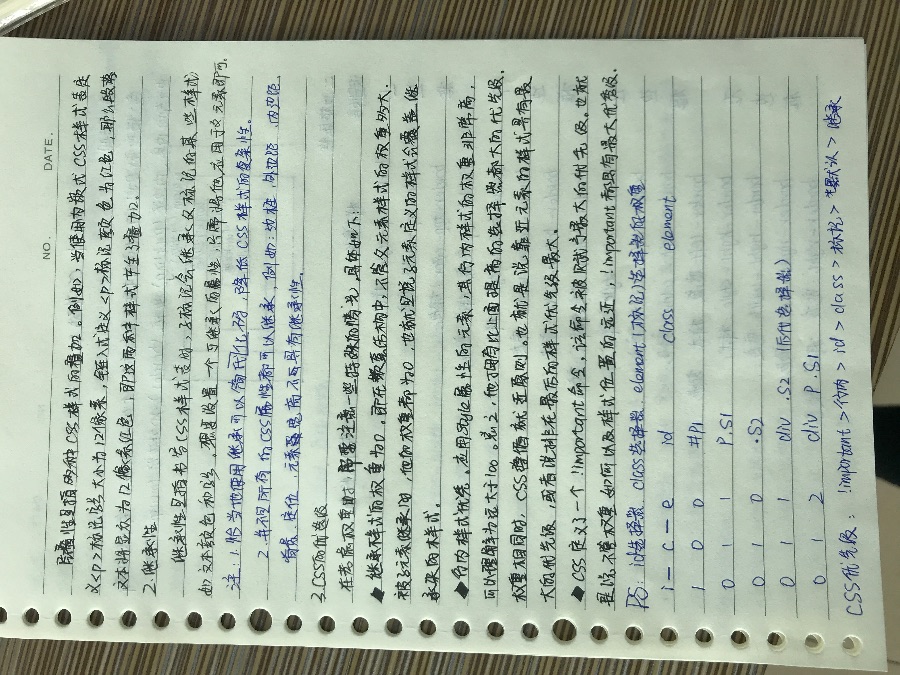 NO.
DATE.
层叠性是指多种CSS样式的叠加。例如,当使用内嵌式CSS样式表定
义<p>标记字号大小为12像素,链入式定义<p>标记颜色为红色,那么段落
文本将显示为12像素红色,即这两种样式产生了叠加。
2.继承性
继承性是指书写CSS样式表时,子标记会继承父标记的某些样式
如文本颜色和字号。想要设置一个可继承的属性,只需将它应用于父元素即可。
注:1.恰当地使用继承可以简化代码,降低CSS样式的复杂性。
2.并不是所有的CSS属性都可以继承,例如:边框、外边距、内边距、
背景、定位、元素高度属性不具有继承性。
3.CSS的优先级
在考虑权重时,需要注意一些特殊的情况,具体如下:
继承样式的权重为0。即在嵌套结构中,不管父元素样式的权重多大,
被子元素继承时,他的权重都为0,也就是说子元素定义的样式会覆盖继
承来的样式。
行内样式优先。应用style属性的元素,其行内样式的权重非常高,
可以理解为远大于100。总之,他拥有比上面提高的选择器都大的优先级。
权重相同时,CSS遵循就近原则。也就是说靠近元素的样式具有最
大的优先级,或者说排在最后的样式优先级最大。
CSS定义了一个!important命令,该命令被赋予最大的优先级。也就
是说不管权重如何以及样式位置的远近,!important都具有最大优先级。
PS: id选择器 class选择器 element(标记)选择器的权重
i — c — e id class element
1 0 0 #P1
0 1 1 P.S1
0 1 0 .S2
0 1 1 div .S2 (后代选择器)
0 1 2 div P.S1
CSS优先级: !important > 行内 > id > class > 标记 > *默认 > 继承